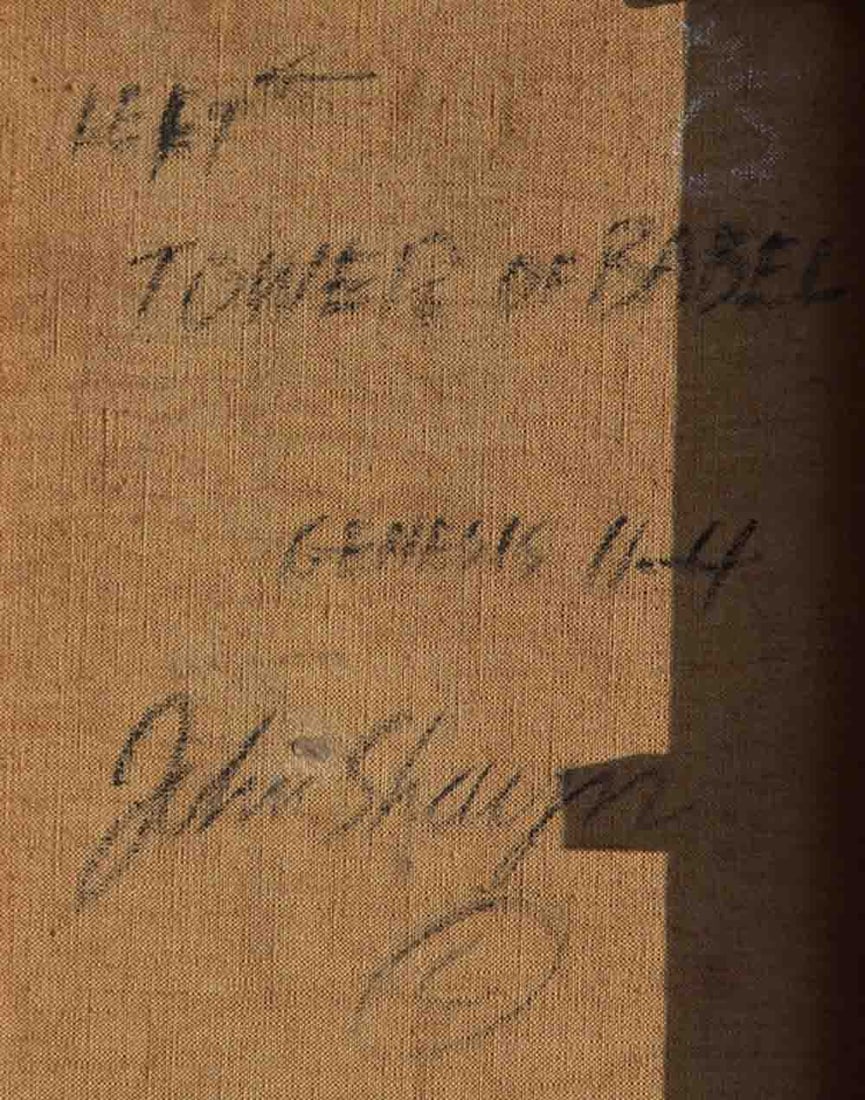 LEFT
TOWER OF BABEL
GENESIS 11-4
John Shayn
©